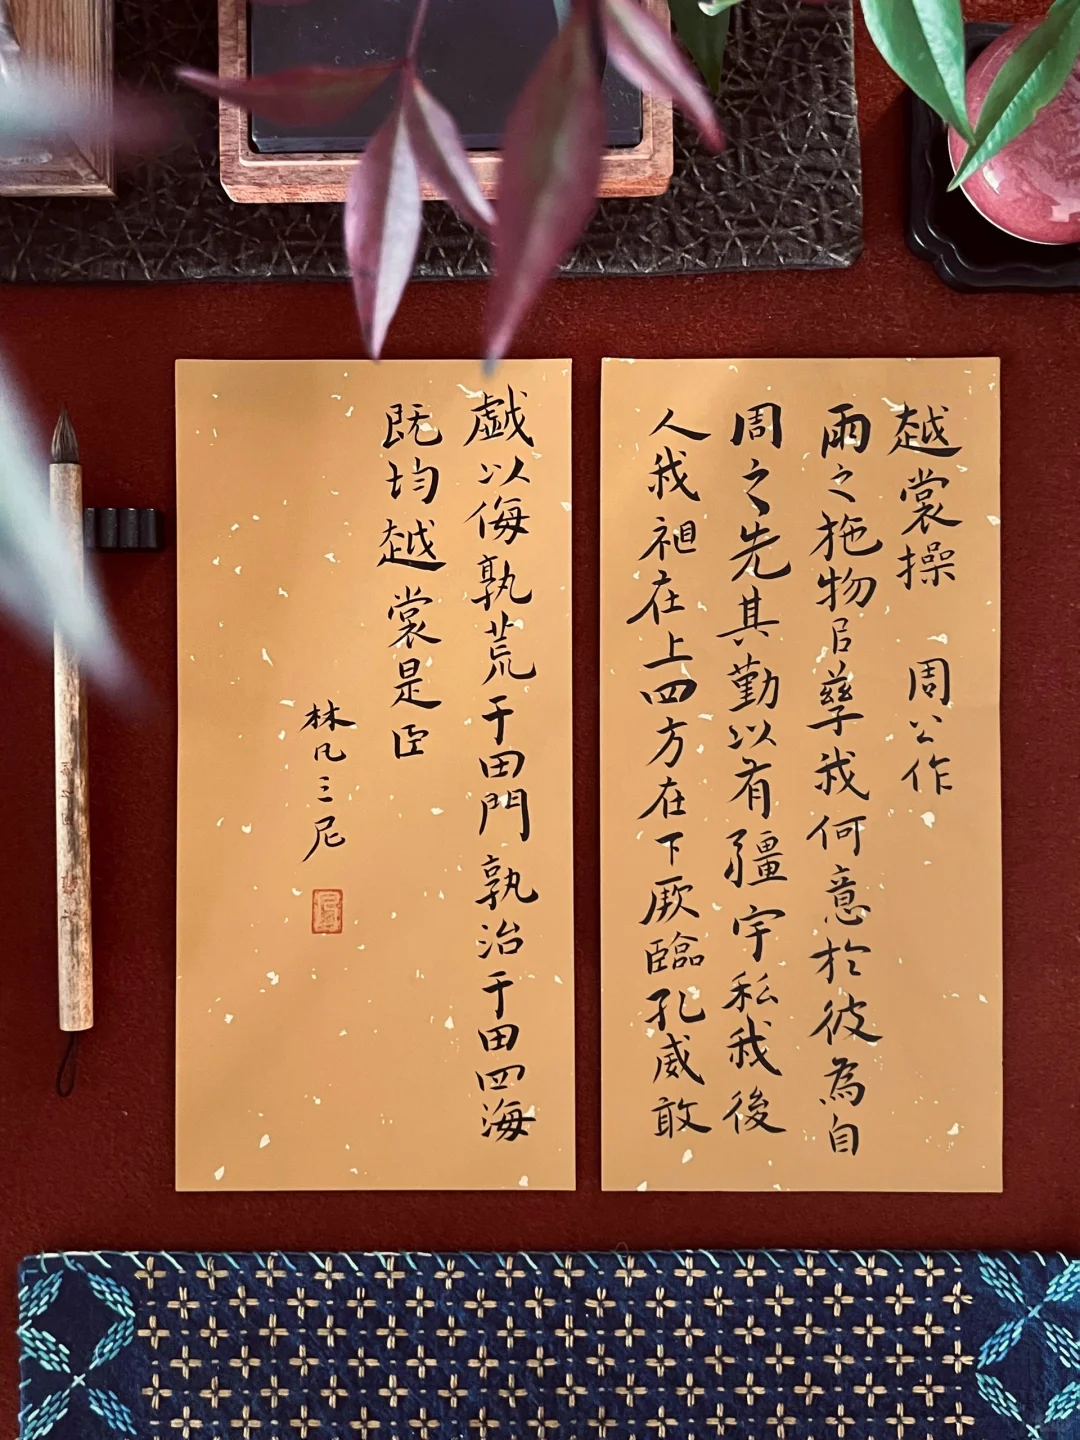 越裳操 周公作
雨之施物㠯孳我何意於彼為自
周之先其勤以有疆宇私我後
人我祖在上四方在下厥臨孔威敢
戯以侮孰荒于田門孰治于田四海
既均越裳是臣
林凡三尼